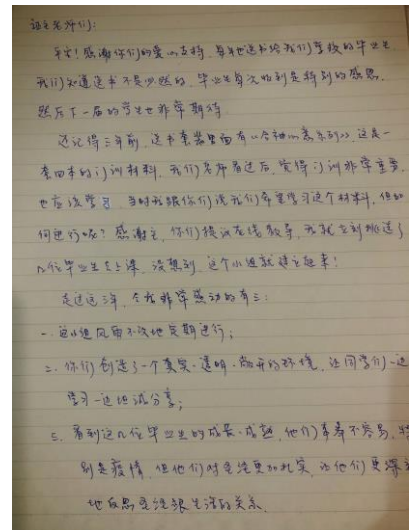 证主老师们:
平安!感谢你们的爱心支持,每年他送书给我们学校的毕业生
我们知道送书不是必然的,毕业生每次收到是特别的感恩,
然后下一届的学生也非常期待.
还记得三年前,送书套装里面有《全神心意系列》,这是一
套四本的门训材料,我们老师看过后,觉得门训非常重要,
也应该学习,当时我跟你们说我们希望学习这个材料,但如
何进行呢?感谢主,你们提议在线教导,我就立刻挑选了
几位毕业生去上课,没想到,这个小组就建立起来!
走过这三年,令我非常感动的有三:
一.这小组风雨不改地定期进行;
二.你们创造了一个真实、透明、敞开的环境,让同学们一边
学习一边坦诚分享;
三.看到这几位毕业生的成长、成熟,他们牵牵不容易,特
别是疫情,但他们对圣经更加扎实,让他们更深
地反思圣经跟生活的关系.